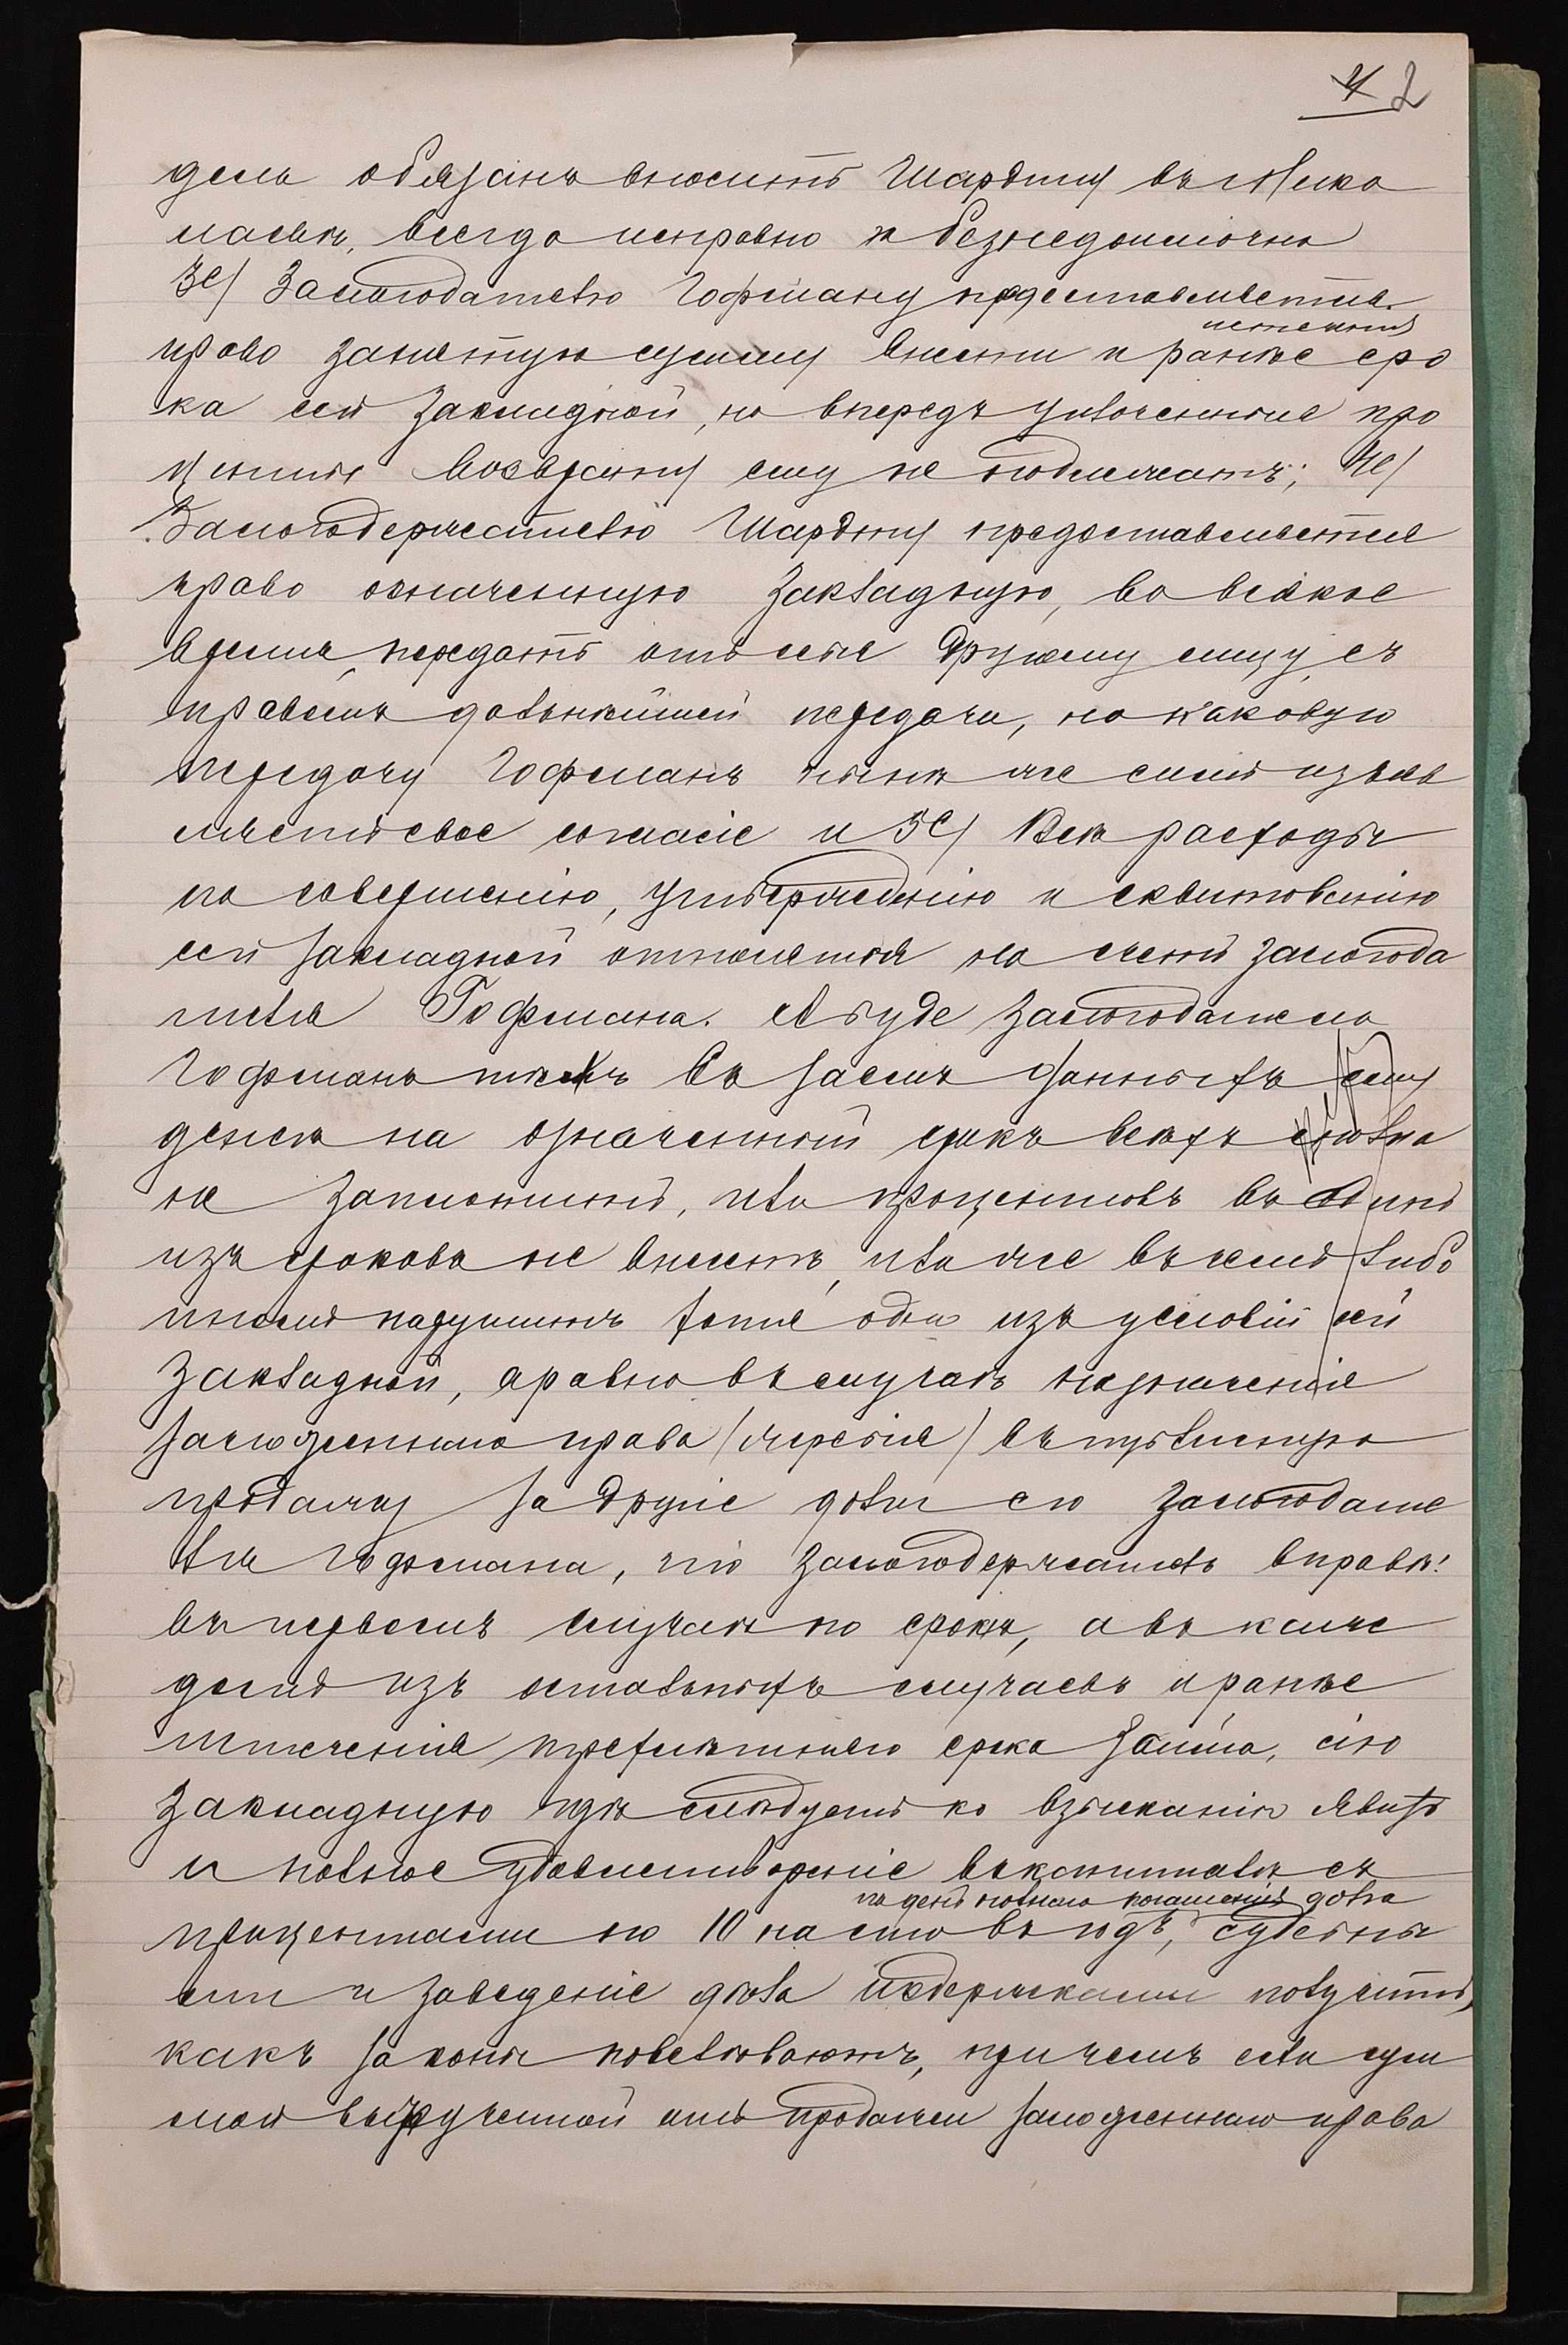 4 2
дель обязанъ вносить Шардту въ г. Нико
лаевѣ, всегда исправно и безнедоимочно
3е/ Залогодателю Гофману предоставляется
право занятую сумму внести и ранѣе сро
истеченія
ка сей закладной, но впередъ уплоченные про
центы возврату ему не подлежатъ; 4е/
Залогодержателю Шардту предоставляется
право означенную закладную, во всякое
время, передать отъ себя другому лицу, съ
правомъ дальнѣйшей передачи, на каковую
передачу Гофманъ нынѣ же симъ изъяв
ляетъ свое согласіе и 5е/ Всѣ расходы
по совершенію, утвержденію и сквитованію
сей закладной относятся на счетъ залогода
теля Гофмана. А буде залогодатель
Гофманъ тѣхъ въ заемъ данныхъ ему
денегъ на означенный срокъ всѣхъ сполна
не заплотитъ, или процентовъ въ одинъ
изъ сроковъ не внесетъ, или же въ чемъ либо
иномъ нарушитъ хотя одно изъ условій сей
закладной, а равно въ случаѣ назначенія
заложеннаго права /жеребія/ въ публичную
продажу за другіе долги его залогодате
ля Гофмана, то залогодержатель вправѣ:
въ первомъ случаѣ по срокѣ, а въ каж
домъ изъ остальныхъ случаевъ и ранѣе
истеченія трехлѣтняго срока займа, сію
закладную гдѣ слѣдуетъ ко взысканію явить
и полное удовлетвореніе въ капиталѣ съ
по день полнаго погашенія долга
процентами по 10 на сто въ годъ, судебны
ми и заведеніе дѣла издержками получить,
какъ законы повелѣваютъ, причемъ если сум
мой вырученной отъ продажи заложеннаго права